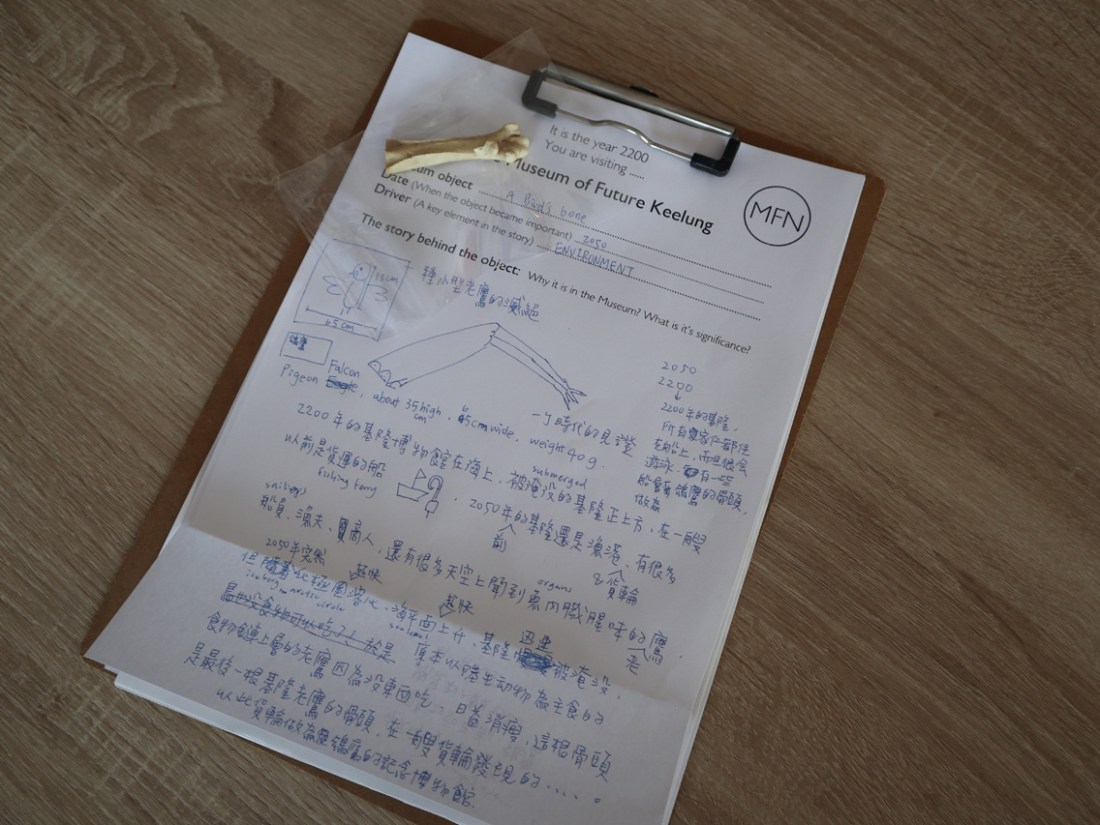 It is the year 2200
You are visiting .....
Museum of Future Keelung
MFN
um object A Bird's bone
Date (When the object became important) 2050
Driver (A key element in the story) ENVIRONMENT
The story behind the object: Why it is in the Museum? What is it's significance?
種小型老鷹的滅絕
15cm
65cm
Pigeon Falcon
, about 35 high, 65cm wide, weight 40g.
cm
一個時代的見證
2050
2200
↓
2200年的基隆,
所有
都住
在船上, 而且很會
游泳. 有一些
船會
鷹的骨頭,
做為
2200年的基隆博物館在海上, 被淹沒的基隆正上方, 在一艘
submerged
以前是貨運的船
2050年的基隆還是漁港, 有很多
前
船員、漁夫、商人, 還有很多天空上聞到魚內臟腥味的鷹.
organs
貨輪
老
2050年突然
越快
越快
但
北極圈溶化, 海平面上升, 基隆
被淹沒.
iceberg arctic circle
sealevel
因此
於是
原本以
生動物為主食的
食物鏈上層的老鷹因為沒東西吃, 日漸消瘦, 這根骨頭
是最後一根基隆老鷹的骨頭, 在一艘貨輪發現的....。
以此貨輪做為
的記念博物館.